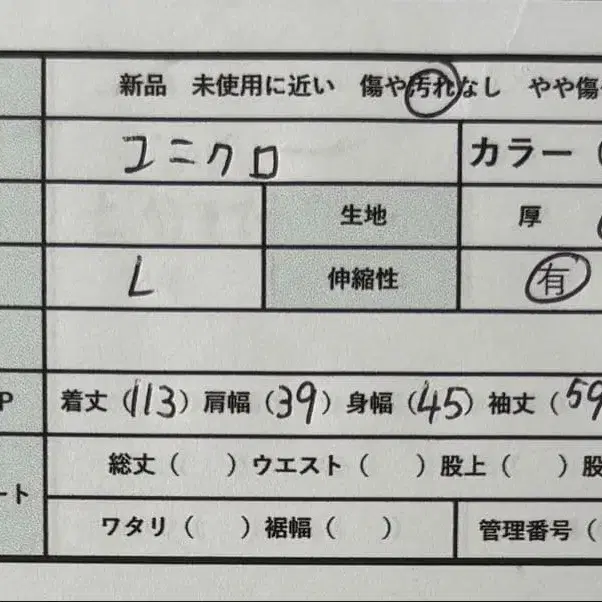 新品 未使用に近い 傷や汚れなし やや傷
ユニクロ カラー（
生地 厚
L 伸縮性 有
P 着丈（113）肩幅（39）身幅（45）袖丈（59
総丈（ ）ウエスト（ ）股上（ ）股
ート
ワタリ（ ）裾幅（ ） 管理番号（